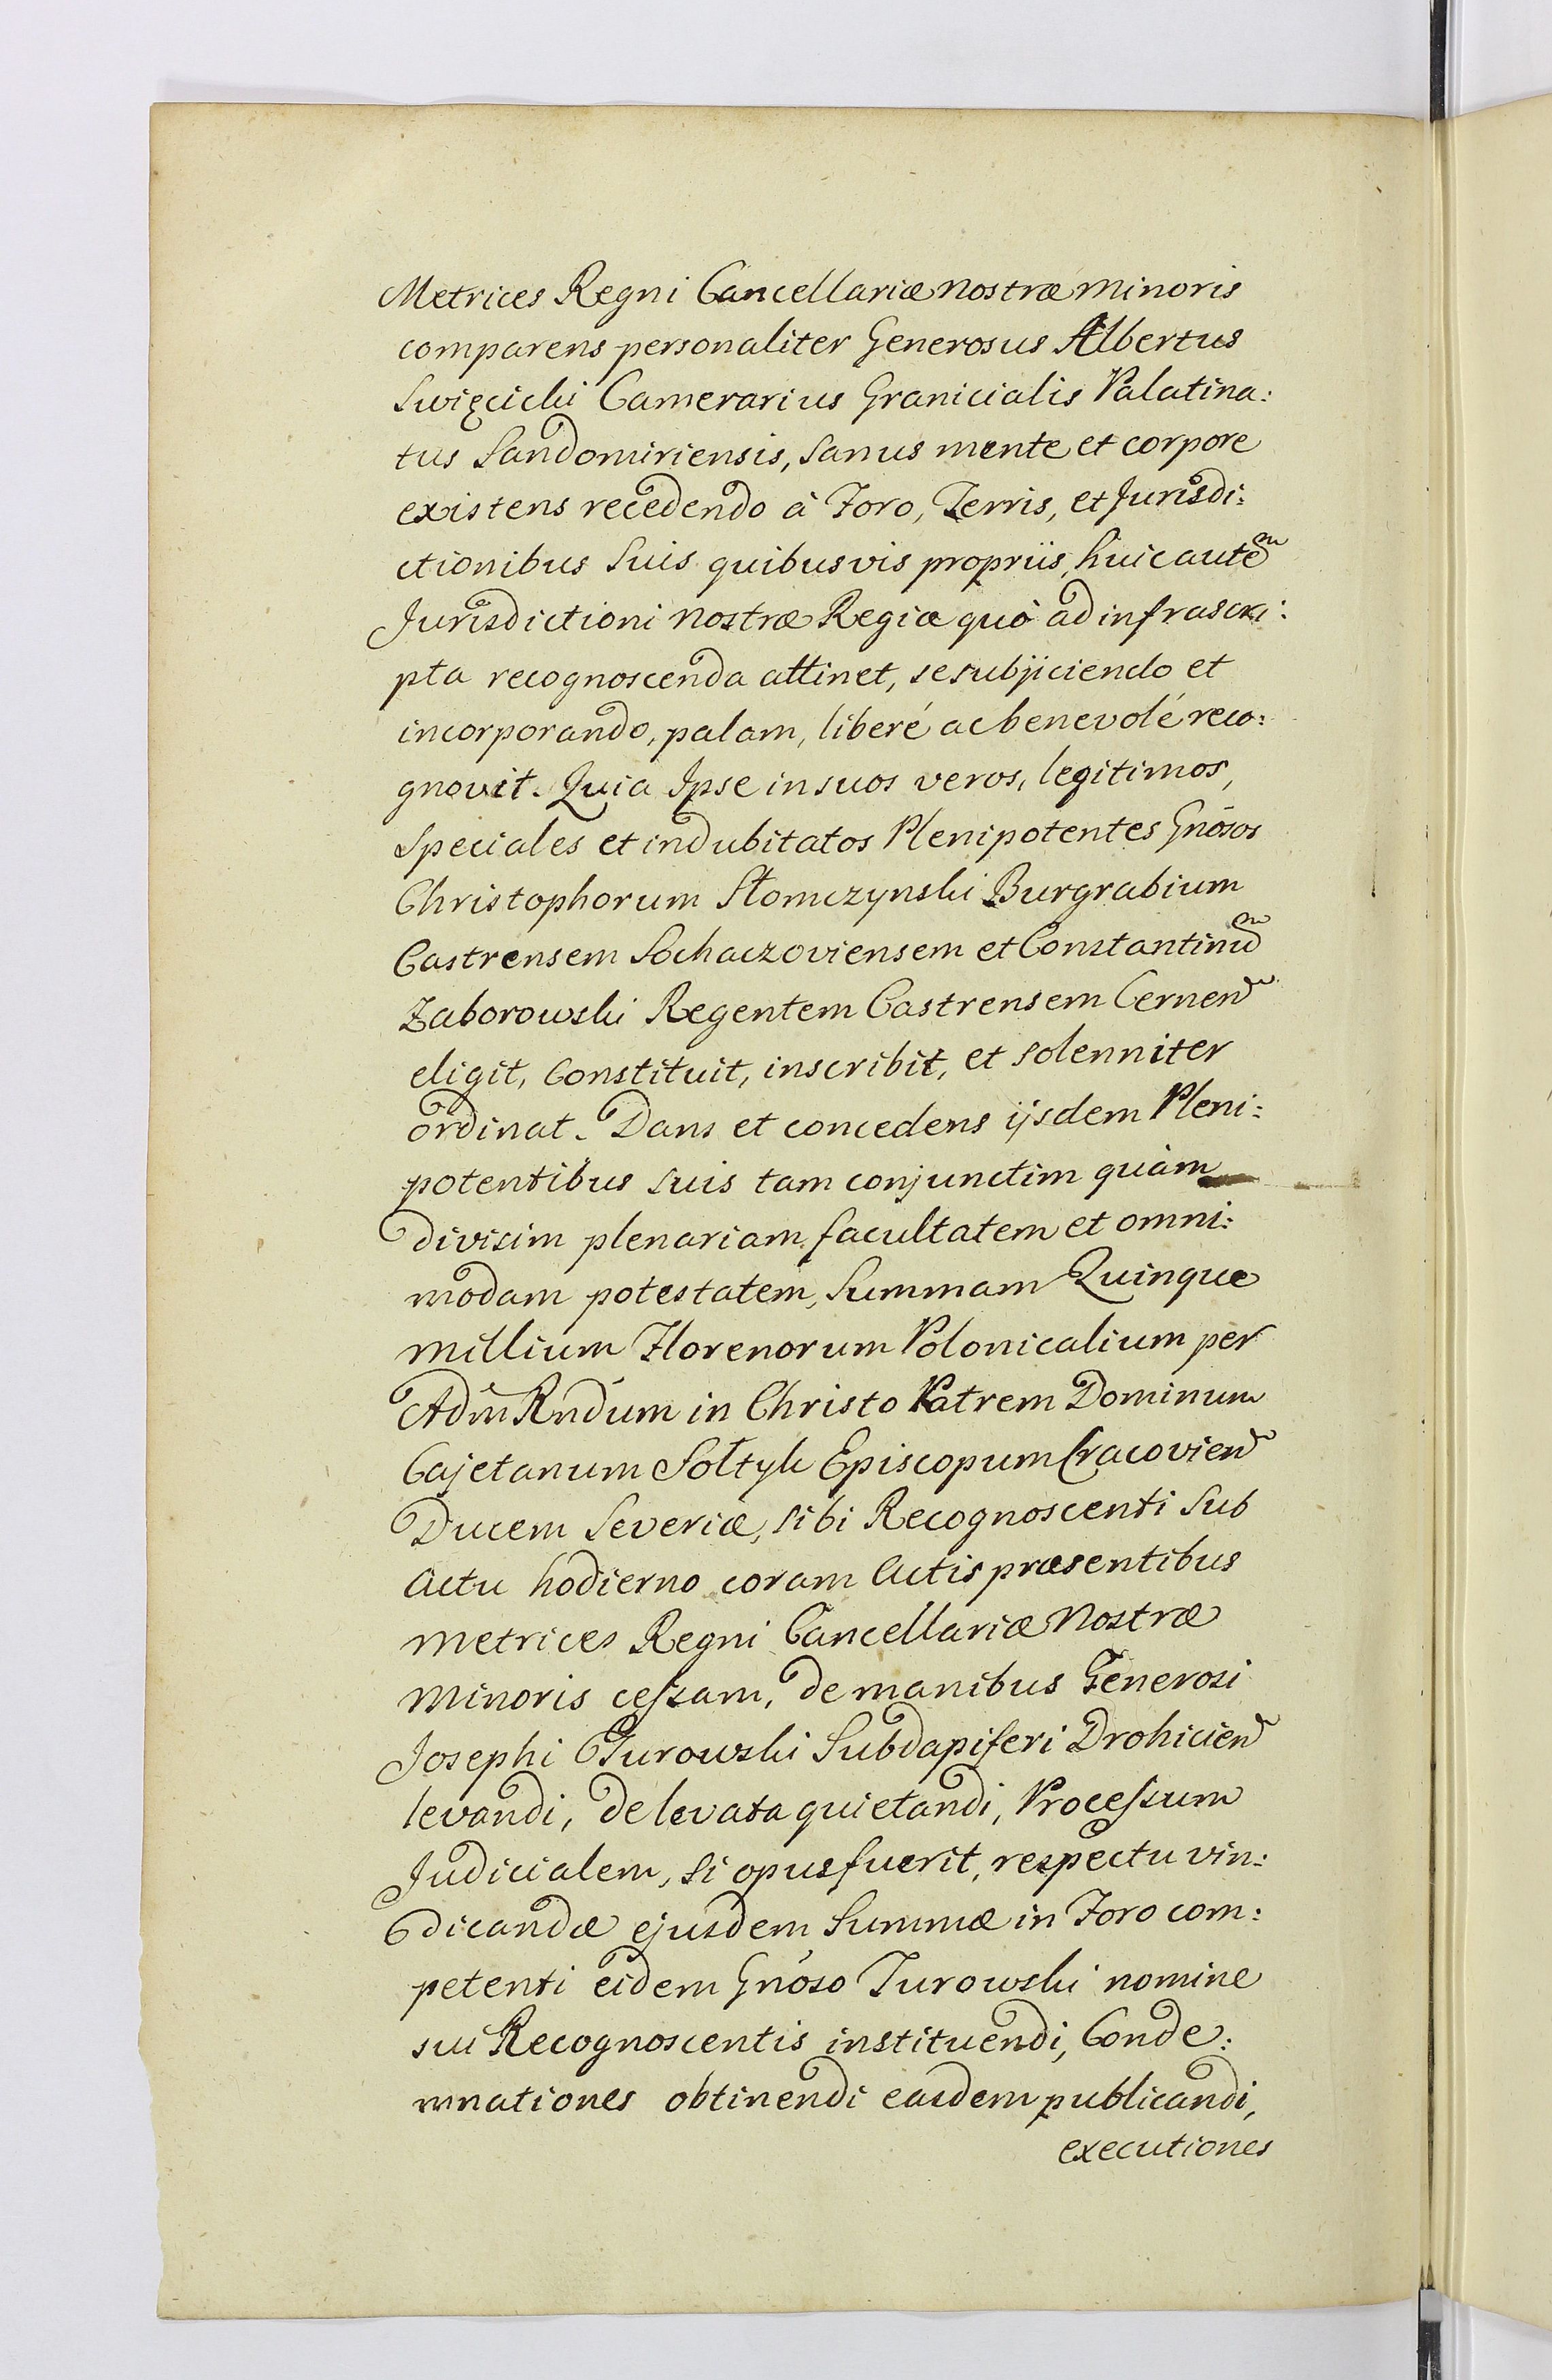 Metrices Regni Cancellariæ Nostræ Minoris
comparens personaliter Generosus Albertus
Swięcicki Camerarius Granicialis Palatina:
tus Sandomiriensis, sanus mente et corpore
existens recedendo à Foro, Terris, et Jurisdi:
ctionibus Suis quibusvis propriis, huic autem
Jurisdictioni Nostræ Regiæ quò ad infrascri:
pta recognoscenda attinet, se subjiciendo et
incorporando, palam, liberé ac benevolé reco:
gnovit. Quia Ipse in suos veros, legitimos,
Speciales et indubitatos Plenipotentes Gnosos
Christophorum Słomczynski Burgrabium
Castrensem Sochaczoviensem et Constantinum
Zaborowski Regentem Castrensem Cernen
eligit, Constituit, inscribit, et solenniter
ordinat. Dans et concedens ijsdem Pleni:
potentibus suis tam conjunctim quàm
divisim plenariam facultatem et omni:
modam potestatem, Summam Quinque
Millium Florenorum Polonicalium per
Adm Rndum in Christo Patrem Dominum
Cajetanum Sołtyk Episcopum Cracovien
Ducem Severiæ, sibi Recognoscenti Sub
Actu hodierno coram Actis præsentibus
Metrices Regni Cancellariæ Nostræ
Minoris cessam, de manibus Generosi
Josephi Turowski Subdapiferi Drohicien
levandi, de levata quietandi, Processum
Judicialem, si opus fuerit, respectu vin:
dicandæ ejusdem Summæ in Foro com:
petenti eidem Gnoso Turowski nomine
sui Recognoscentis instituendi, Conde:
mnationes obtinendi easdem publicandi,
executiones